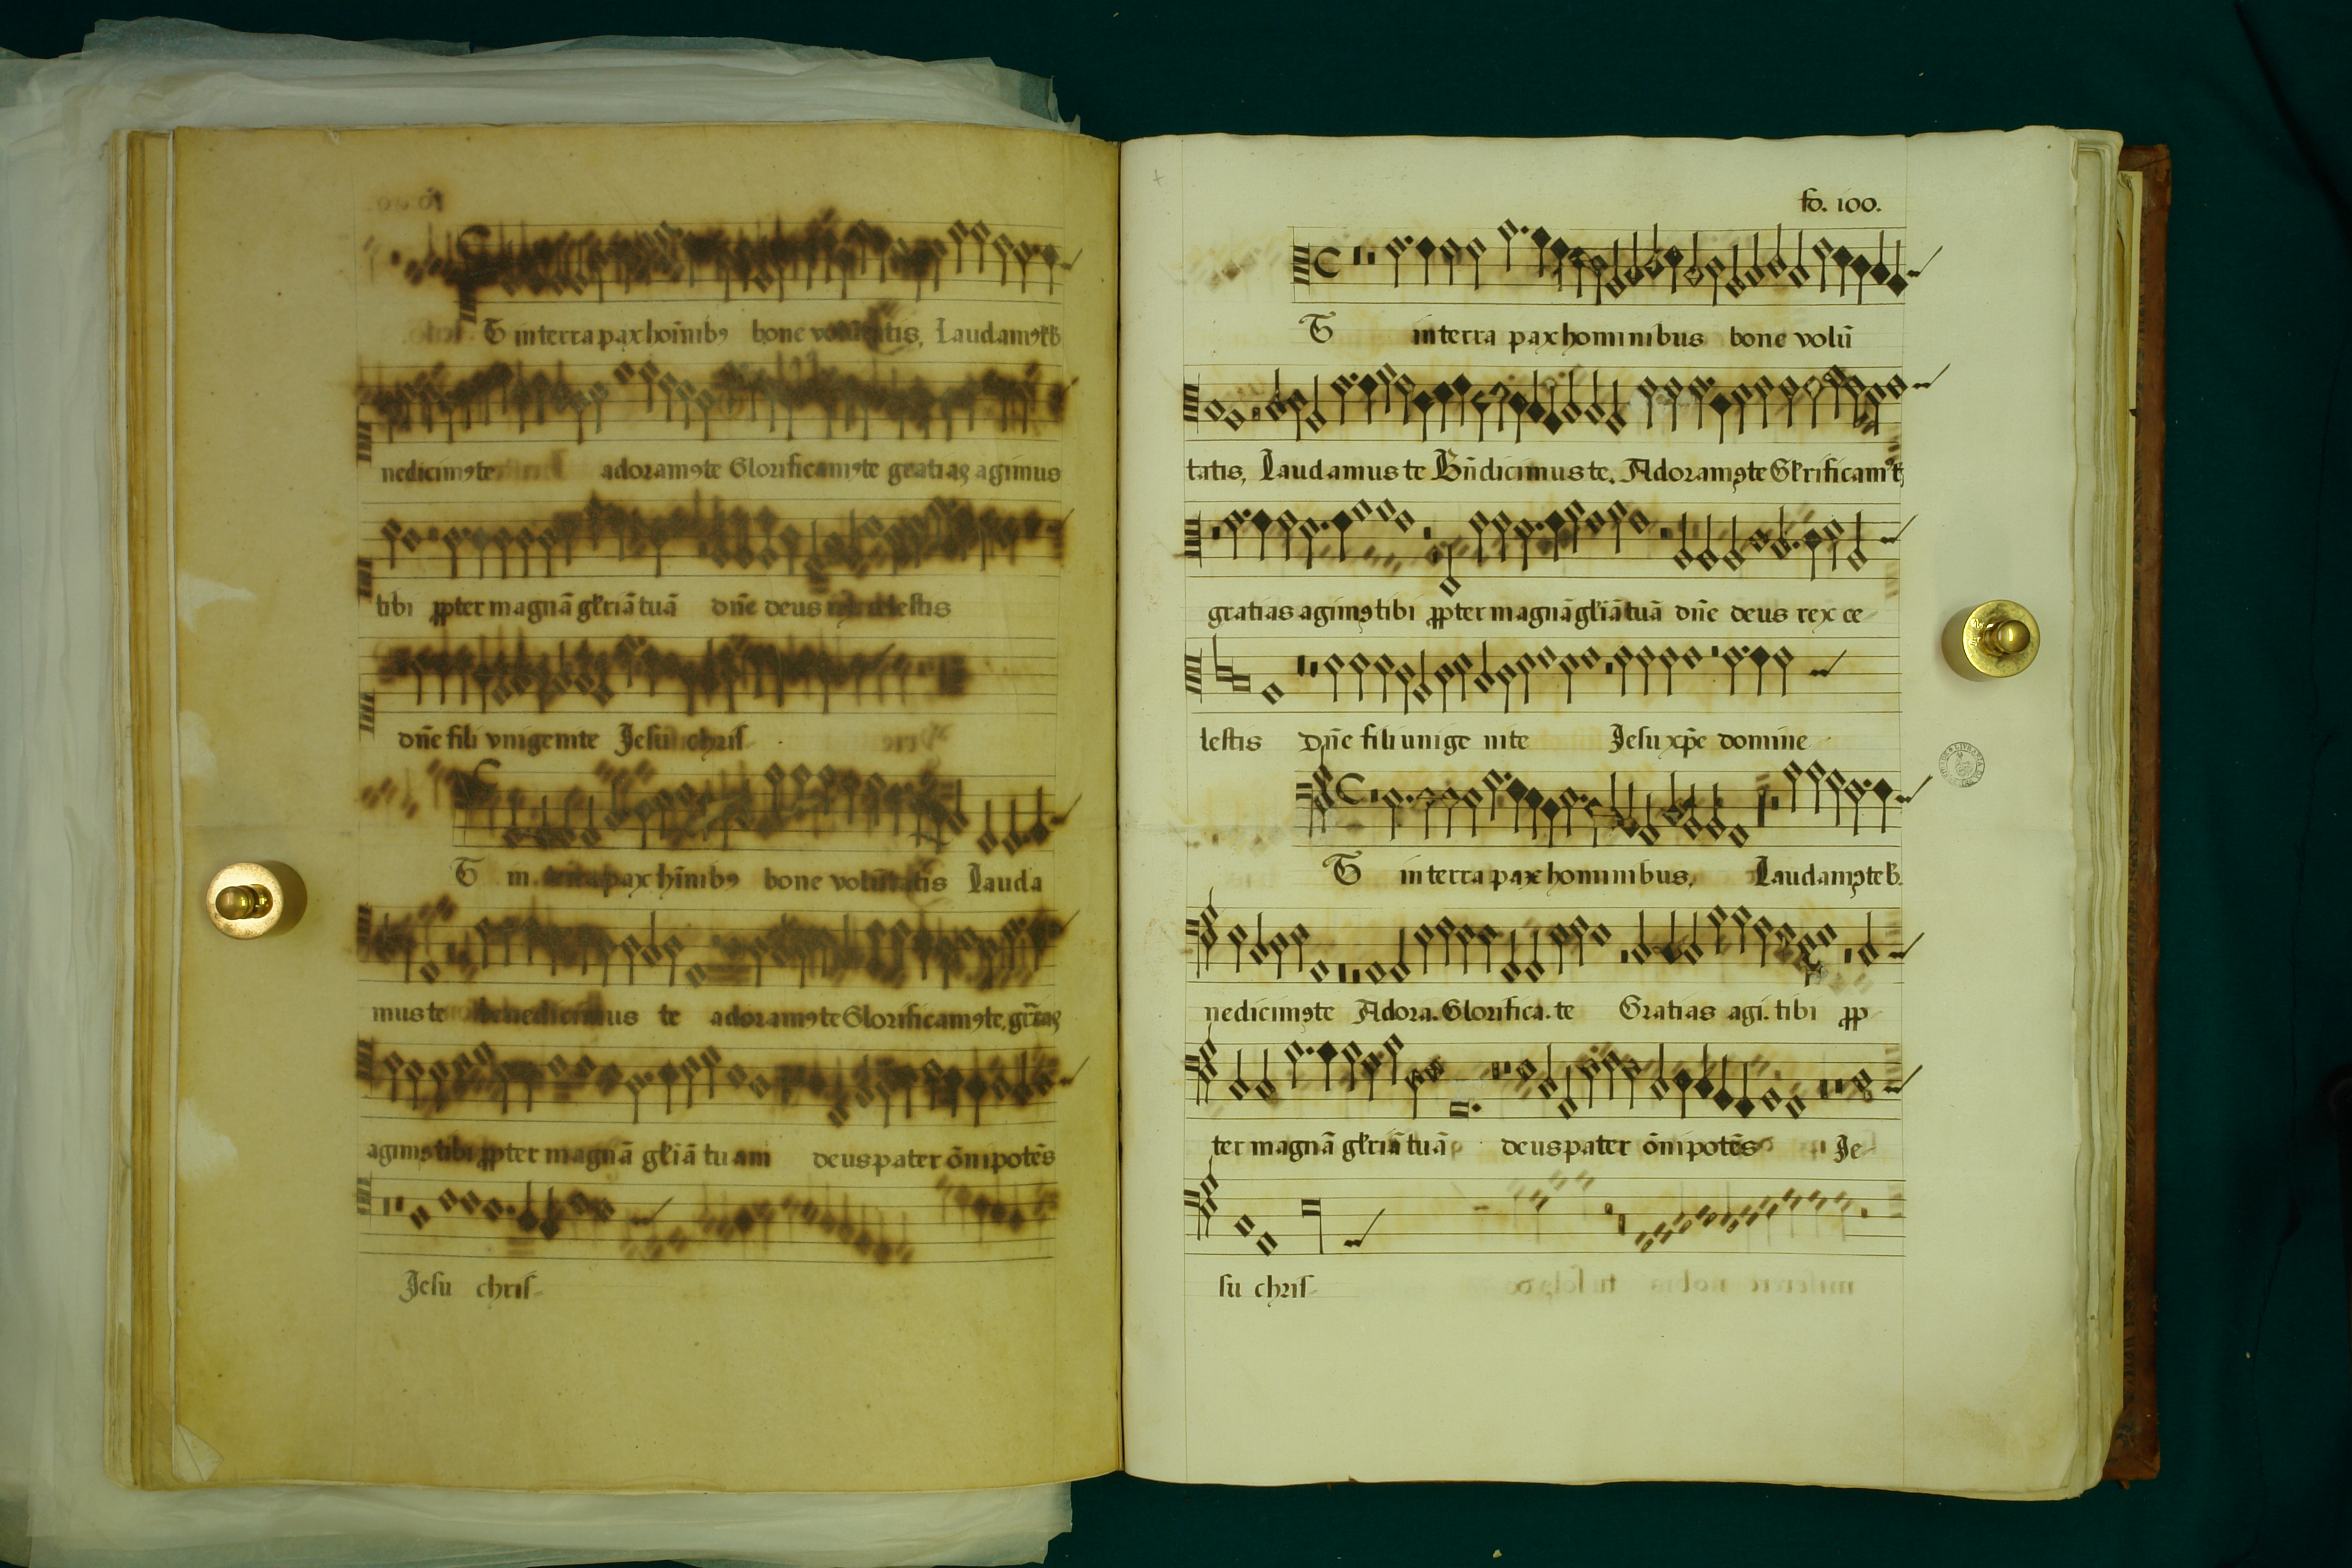 Et in terra pax hoı̄nibꝯ bone volūtatis, Laudamꝯ te b
nedicimꝯ te adoramꝯ te Glorificamꝯ te gratias agimus
tibi ꝓpter magnā gl'riā tuā dn̄e deus rex celestis
dn̄e fili vnigenite Jesu chris-
Et in terra pax hı̄nibꝯ bone volūtatis Lauda
mus te benedicimus te adoramꝯ te Glorificamꝯ te, gr̄as
agimꝯ tibi ꝓpter magnā gl'iā tuam deus pater ōnipotēs
Jesu chris-
fo. 100.
Et in terra pax hominibus bone volū
tatis, Laudamus te Bn̄dicimus te. Adoramꝯ te Gl'rificamꝯ t
gratias agimꝯ tibi ꝓpter magnā gl'iā tuā dn̄e deus rex ce-
lestis Dn̄e fili unige nite Jesu xp̄e domine
Et in terra pax hominibus, Laudamꝯ te b.
nedicimꝯ te Adora. Glorifica. te Gratias agi. tibi ꝓp
ter magnā gl'riā tuā deus pater ōnipotēs Je-
su chris-